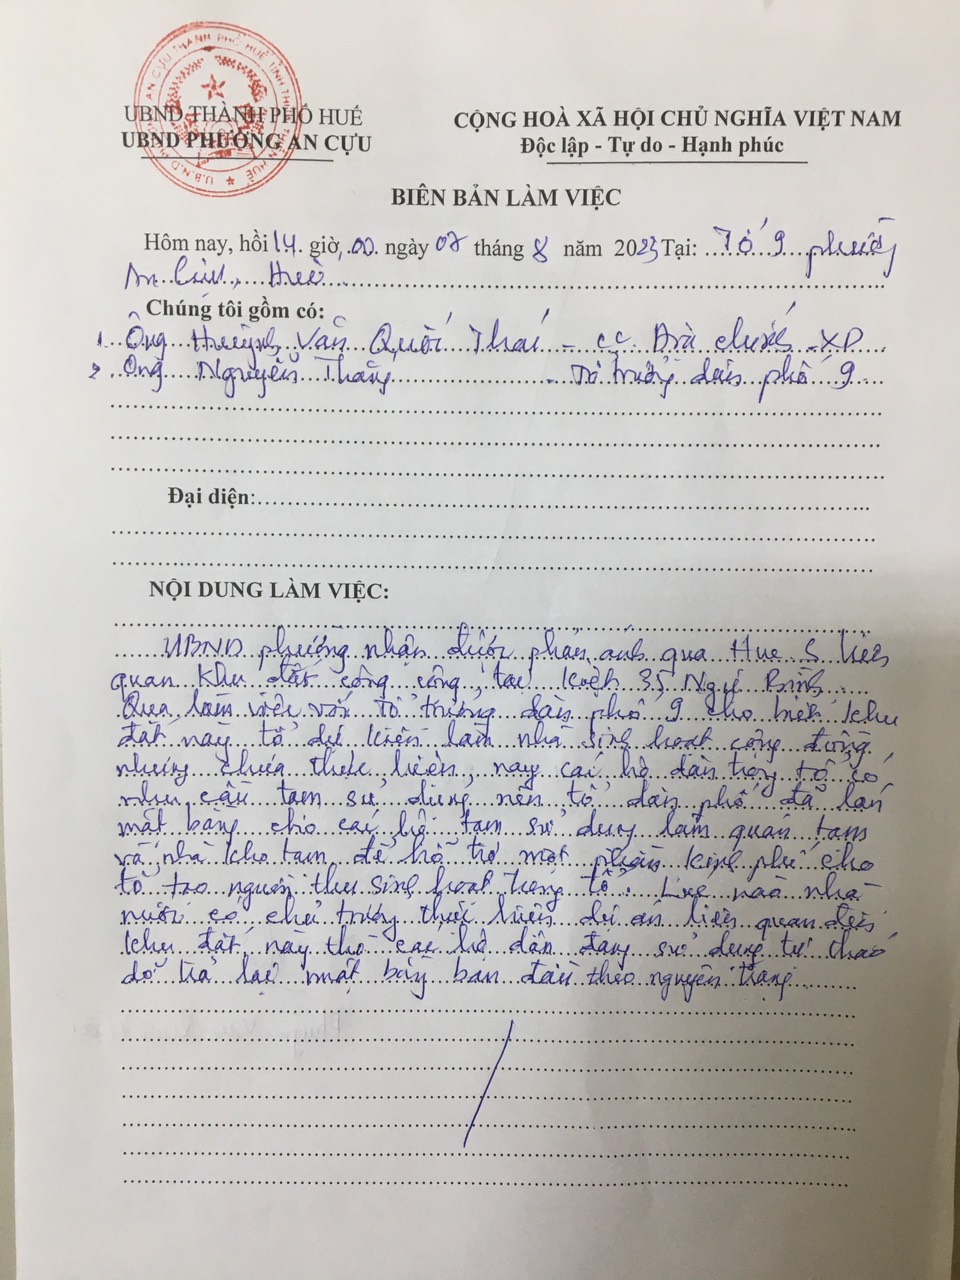 U.B.N.D PHƯỜNG AN CỰU THÀNH PHỐ HUẾ TỈNH THỪA THIÊN HUẾ
UBND THÀNH PHỐ HUẾ
UBND PHƯỜNG AN CỰU
CỘNG HOÀ XÃ HỘI CHỦ NGHĨA VIỆT NAM
Độc lập - Tự do - Hạnh phúc
BIÊN BẢN LÀM VIỆC
Hôm nay, hồi 14 giờ, 00 ngày 07 tháng 8 năm 2023 Tại: Tổ 9 phường
An Cựu, Huế
Chúng tôi gồm có:
1. Ông Huỳnh Văn Quốc Thái - CC. Địa chính - XD
2. Ông Nguyễn Thắng - Tổ trưởng dân phố 9
Đại diện:
NỘI DUNG LÀM VIỆC:
UBND phường nhận được phản ánh qua Hue S liên
quan khu đất công cộng, tại kiệt 35 Ngự Bình
Qua làm việc với tổ trưởng dân phố 9 cho biết khu
đất này tổ dự kiến làm nhà sinh hoạt cộng đồng
nhưng chưa thực hiện, nay các hộ dân trong tổ có
nhu cầu tạm sử dụng nên tổ dân phố đã lấy
mặt bằng cho các hộ tạm sử dụng làm quán tạm
và nhà kho tạm để hỗ trợ một phần kinh phí cho
tổ tạo nguồn thu sinh hoạt trong tổ. Lúc nào nhà
nước có chủ trương thực hiện dự án liên quan đến
khu đất này thì các hộ dân đang sử dụng tự tháo
dỡ trả lại mặt bằng ban đầu theo nguyên trạng